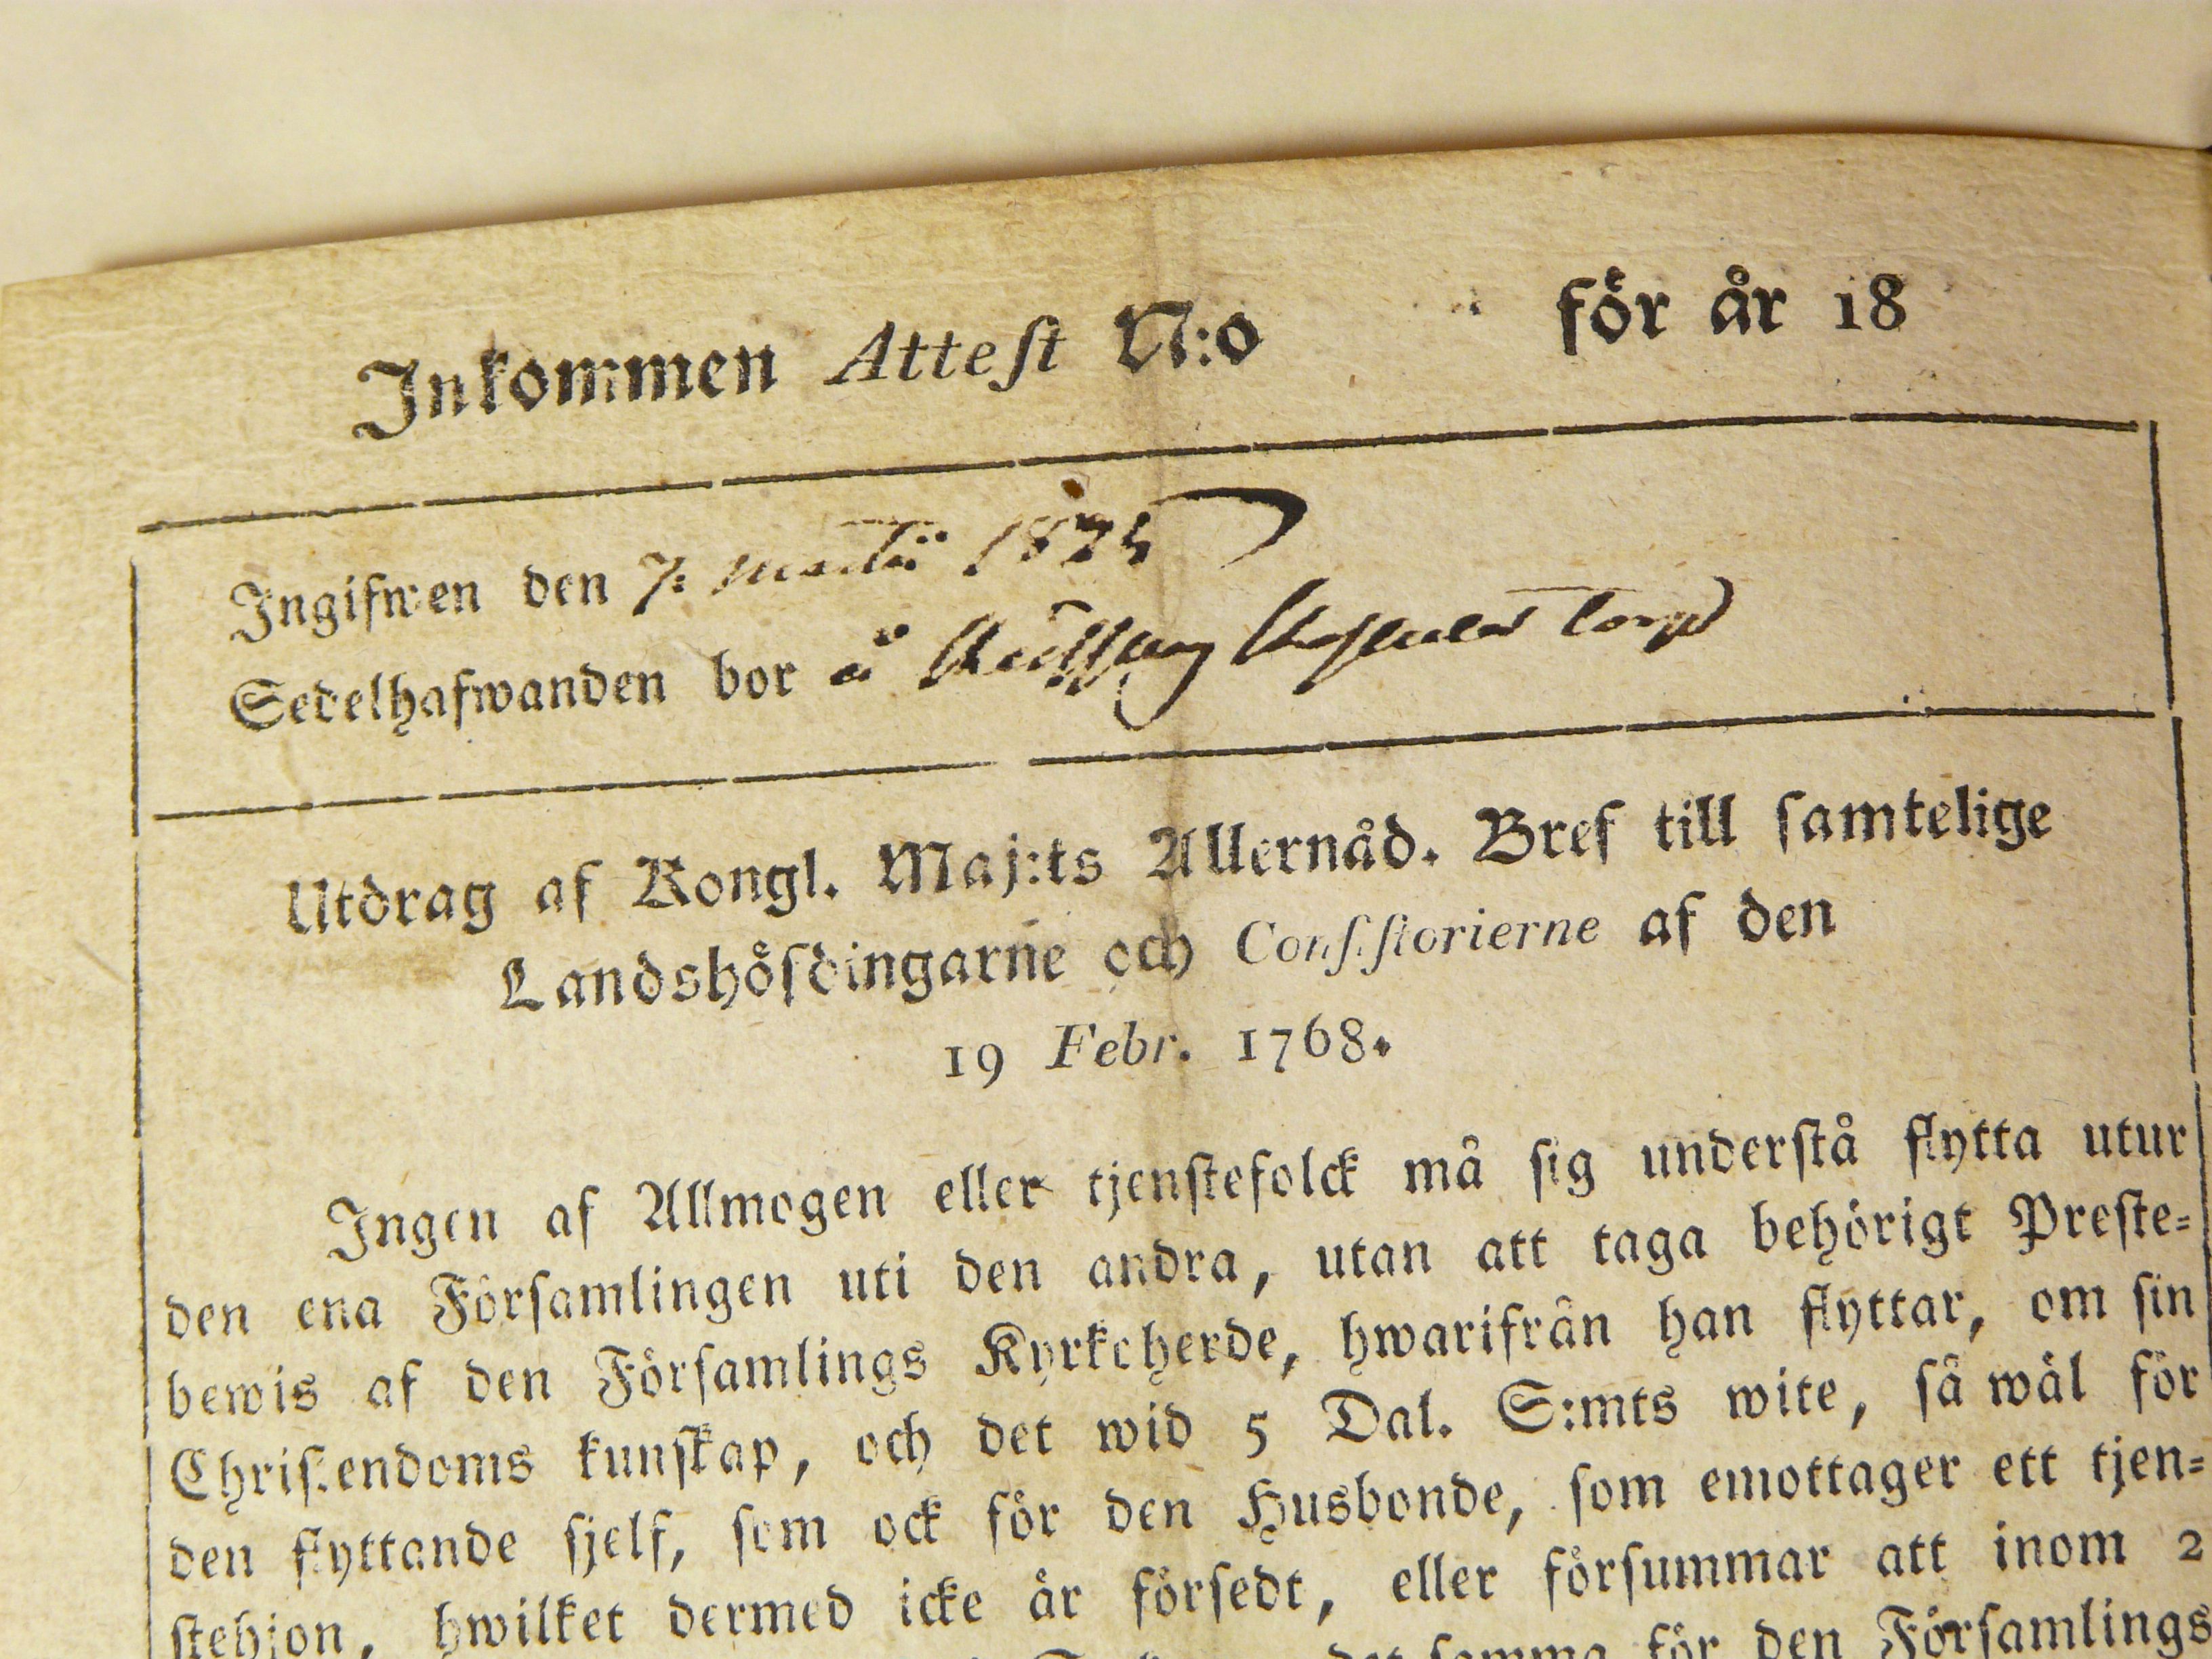 Inkommen Attest N:o för år 18
Ingifwen den 7: Martii 1825
Sedelhafwanden bor å torp
Utdrag af Kongl. Maj:ts Allernåd. Bref till samtelige
Landshöfdingarne och Consistorierne af den
19 Febr. 1768.
Ingen af Allmogen eller tjenstefolck må sig understå flytta utur
den ena Församlingen uti den andra, utan att taga behörigt Preste-
bewis af den Församlings Kyrkoherde, hwarifrån han flyttar, om sin
Christendoms kunskap, och det wid 5 Dal. S:mts wite, så wäl för
den flyttande sjelf, som ock för den Husbonde, som emottager ett tjen-
stehjon, hwilket dermed icke är försedt, eller försummar att inom 2
det samma för den Församlings